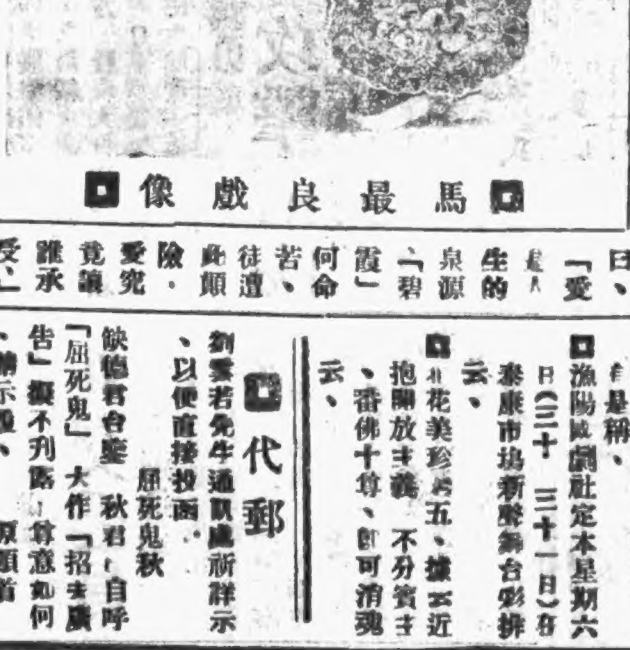 馬最良戲像
曰、
「愛
生的
泉源
「碧
霞」
何命
苦、
徒遭
此顛
險.
愛究
竟讓
誰承
受、」
是稱、
漁陽國劇社定本星期六
日(三十 三十一日)在
泰康市場新聲舞台彩排
云、
花美珍 五、據云近
抱開放主義 不分賓主
、番佛十尊、即可消魂
云、
代郵
劉雲若先生通訊處祈詳示
、以便直接投函.
屈死鬼秋
缺德君台鑒 秋君 自呼
「屈死鬼」大作「招夫廣
告」擬不刊露 尊意如何
、請示復、